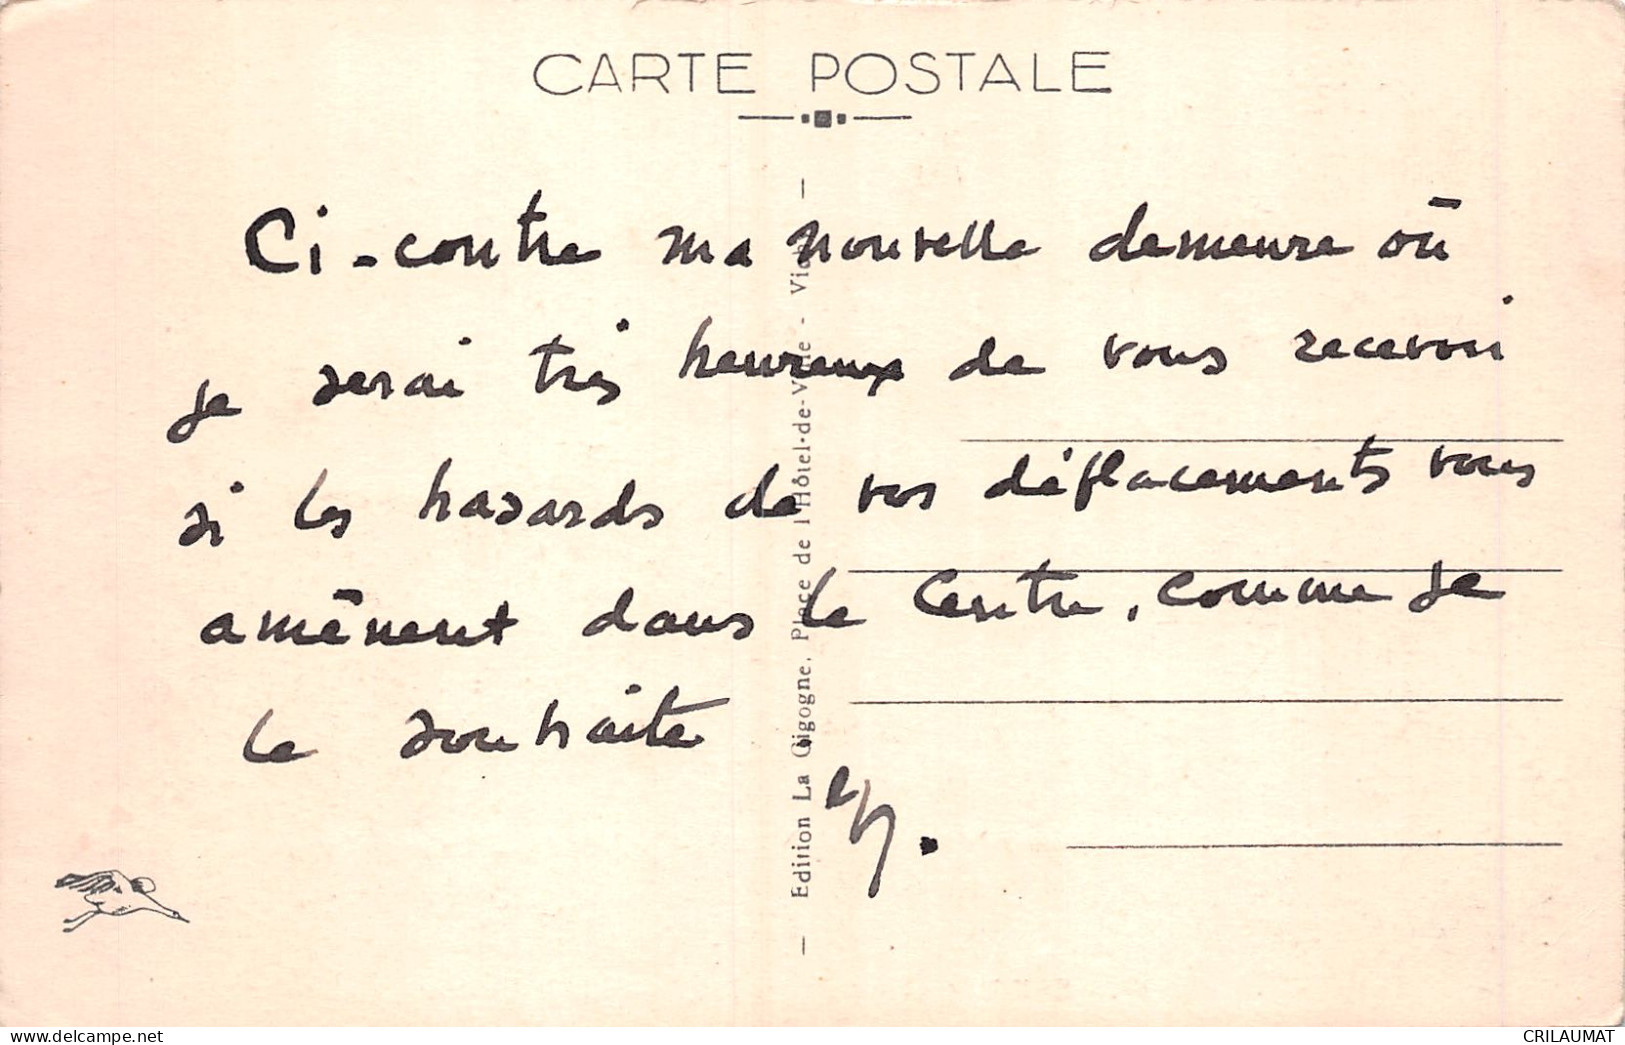 CARTE POSTALE
Ci-contre ma nouvelle demeure où
je serai très heureux de vous recevoir
si les hasards de vos déplacements vous
amènent dans le Centre, comme je
le souhaite
Edition La Gigogne, Place de l'Hôtel-de-Ville -
www.delcampe.net
CRILAUMAT